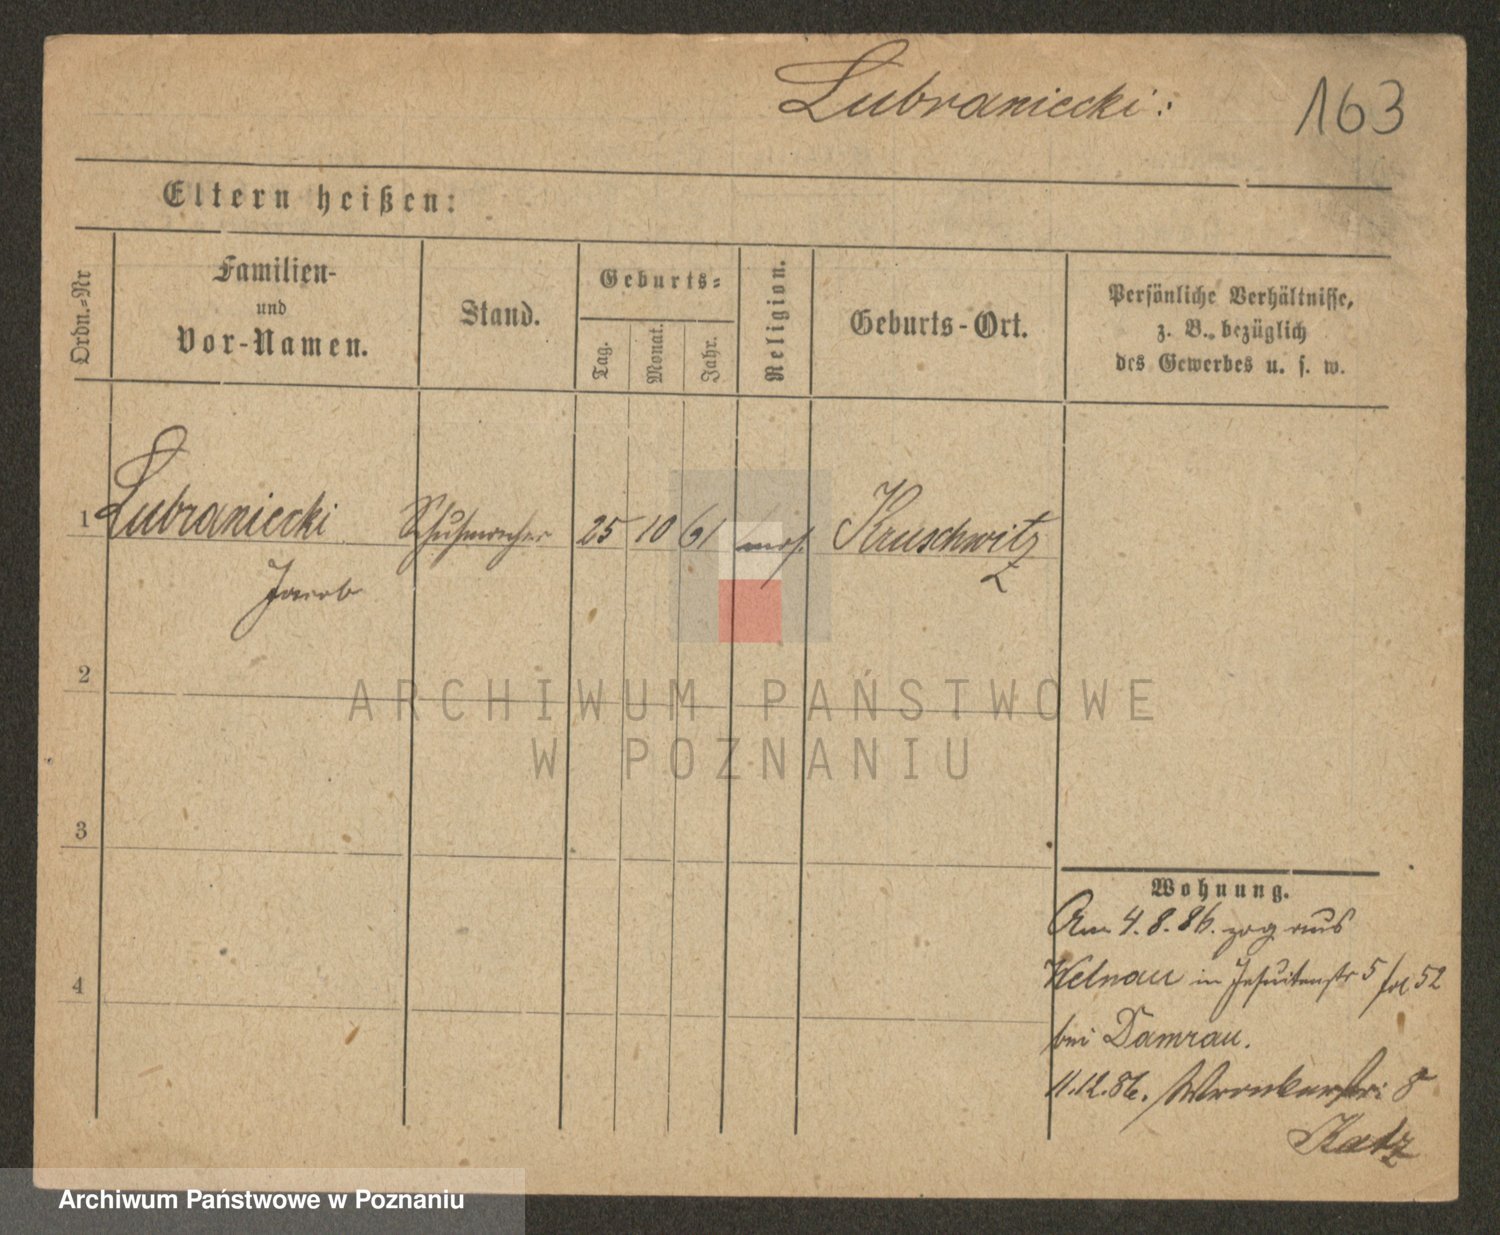 Lubraniecki:
163
Eltern heißen:
Ordn.-Nr
Familien-
und
Vor-Namen.
Stand.
Geburts-
Tag.
Monat.
Jahr.
Religion.
Geburts-Ort.
Persönliche Verhältnisse,
z. B. bezüglich
des Gewerbes u. s. w.
1 Lubraniecki Schuhmacher 25 10 61 mos. Kruschwitz
Jacob
2
3
4
Wohnung.
Am 4.8.86. zog aus
Welnau in Jesuitenstr 5 fol 52
bei Damrau.
11.12.86. Wronkerstr: 8
Katz
ARCHIWUM PAŃSTWOWE
W POZNANIU
Archiwum Państwowe w Poznaniu